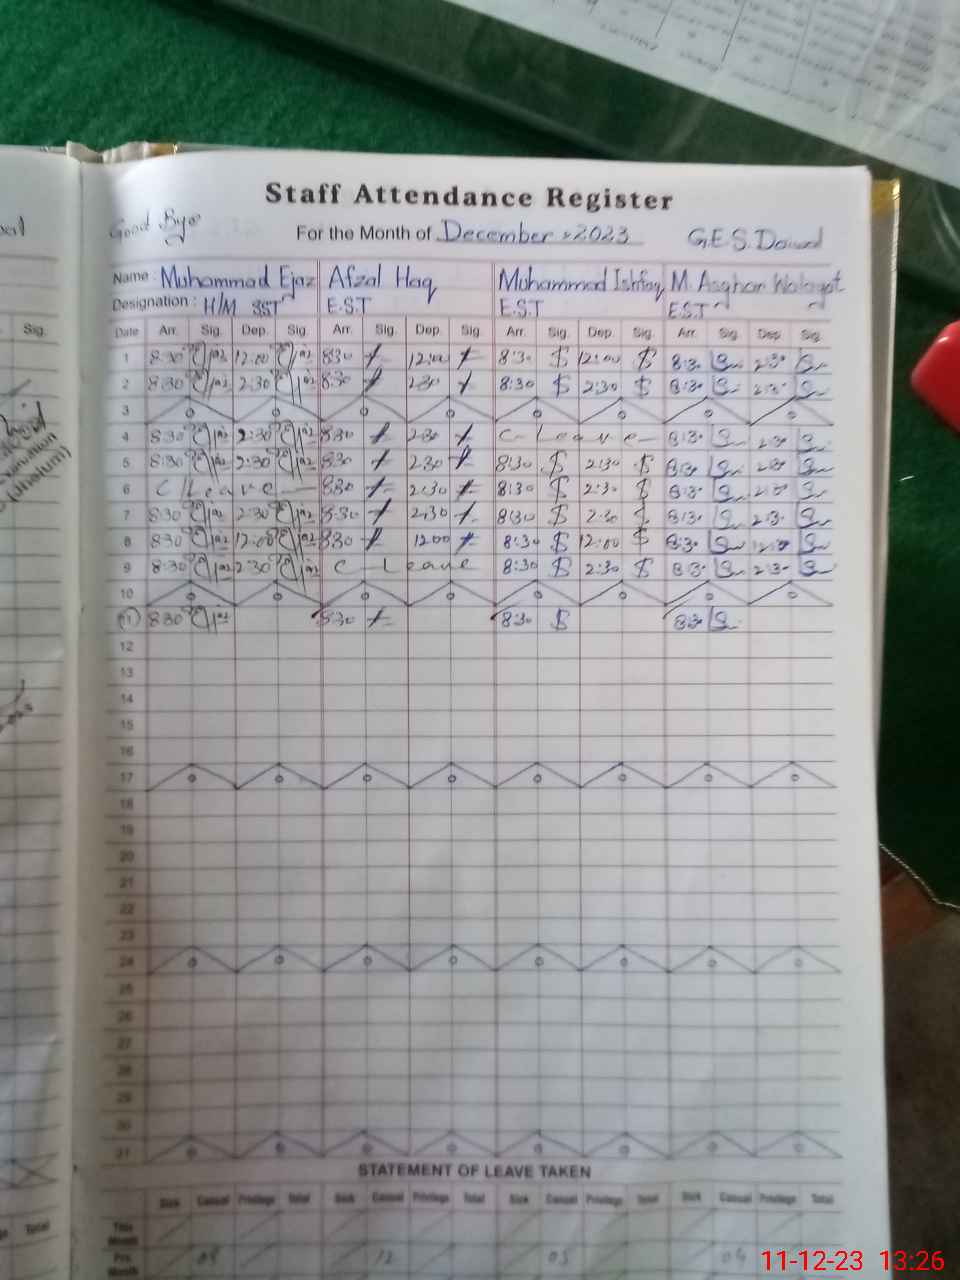 Staff Attendance Register
Good Bye
For the Month of December 2023 G.E.S.
Name : Muhammad Ejaz Afzal Haq Muhammad Ishfaq M. Asghar
Designation : H/M SST E.S.T E.S.T E.S.T
Sig. Date Arr. Sig. Dep. Sig. Arr. Sig. Dep. Sig. Arr. Sig. Dep. Sig. Arr. Sig. Dep. Sig.
1 8:30 12:00 8:30 12:00 8:30 12:00 8:30 2:30
2 8:30 2:30 8:30 2:30 8:30 2:30 8:30 2:30
3
4 8:30 2:30 8:30 2:30 C- Leave 8:30 2:30
5 8:30 2:30 8:30 2:30 8:30 2:30 8:30 2:30
6 C/Leave 8:30 2:30 8:30 2:30 8:30 2:30
7 8:30 2:30 8:30 2:30 8:30 2:30 8:30 2:30
8 8:30 12:00 8:30 12:00 8:30 12:00 8:30
9 8:30 2:30 C- Leave 8:30 2:30 8:30 2:30
10
11 8:30 8:30 8:30 8:30
12
13
14
15
16
17
18
19
20
21
22
23
24
25
26
27
28
29
30
31
STATEMENT OF LEAVE TAKEN
Sick Casual Privilege Total Sick Casual Privilege Total Sick Casual Privilege Total Sick Casual Privilege Total
This
Month
Total Pre. 12 03 04
Month
11-12-23 13:26